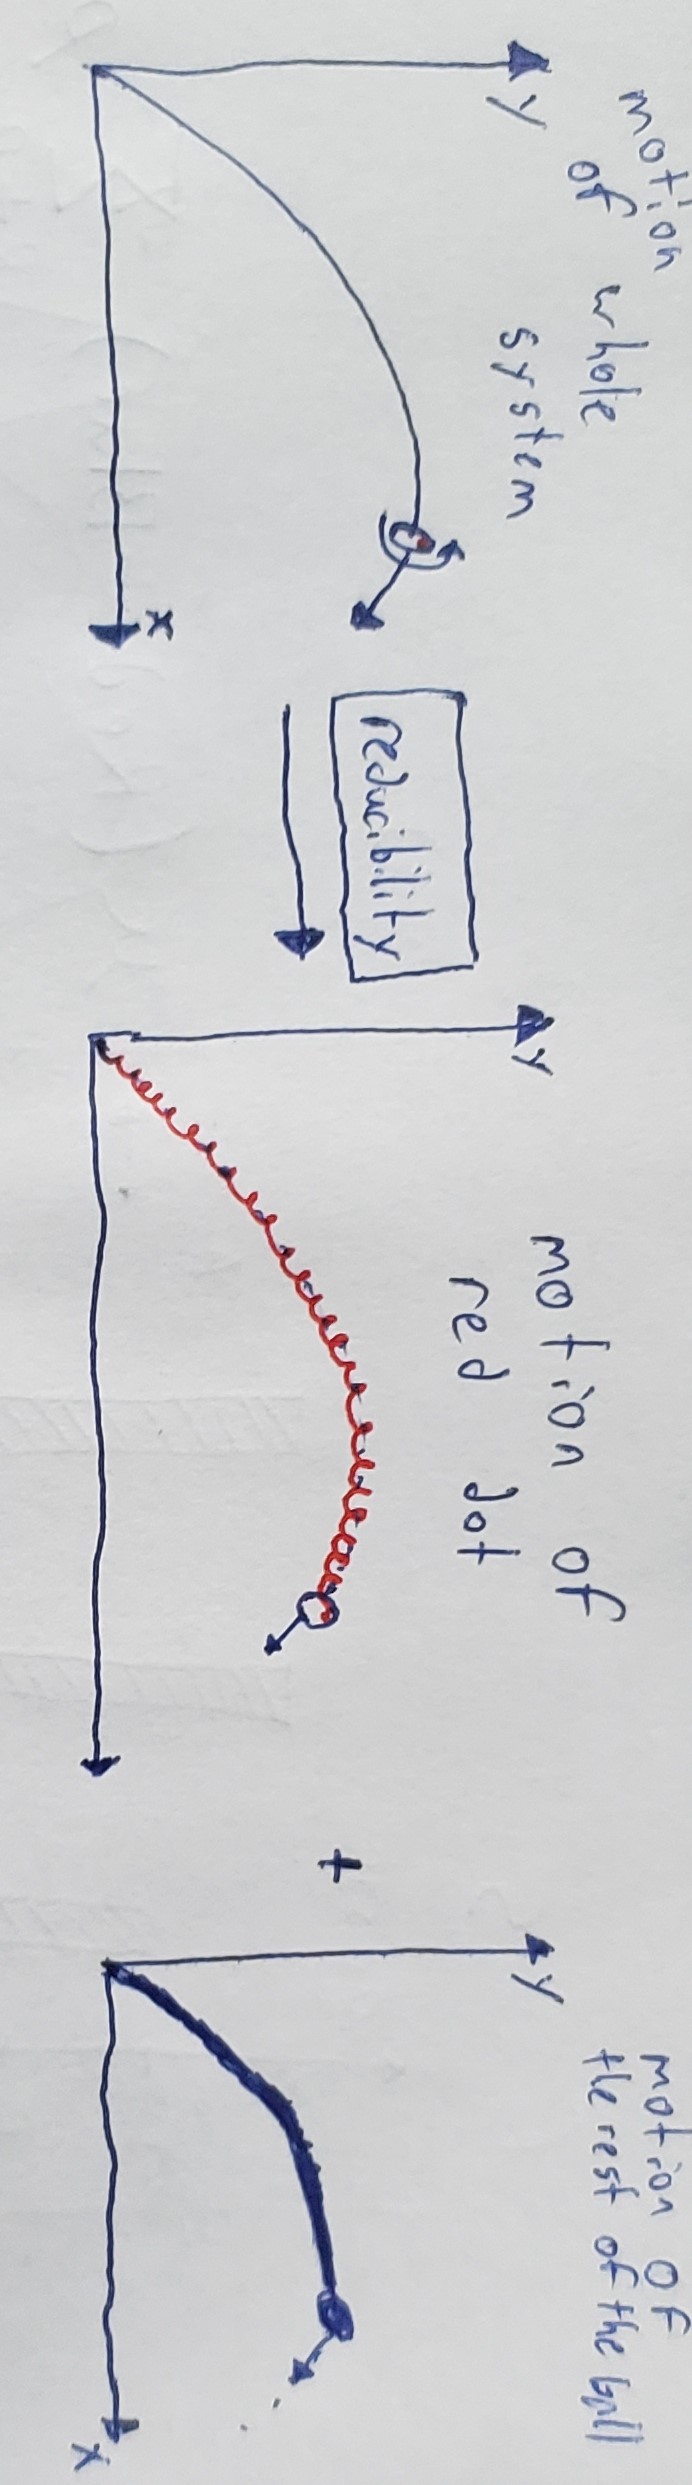 motion
of whole
system
y
x
reducibility
motion of
red dot
y
+
motion of
the rest of the ball
y
x